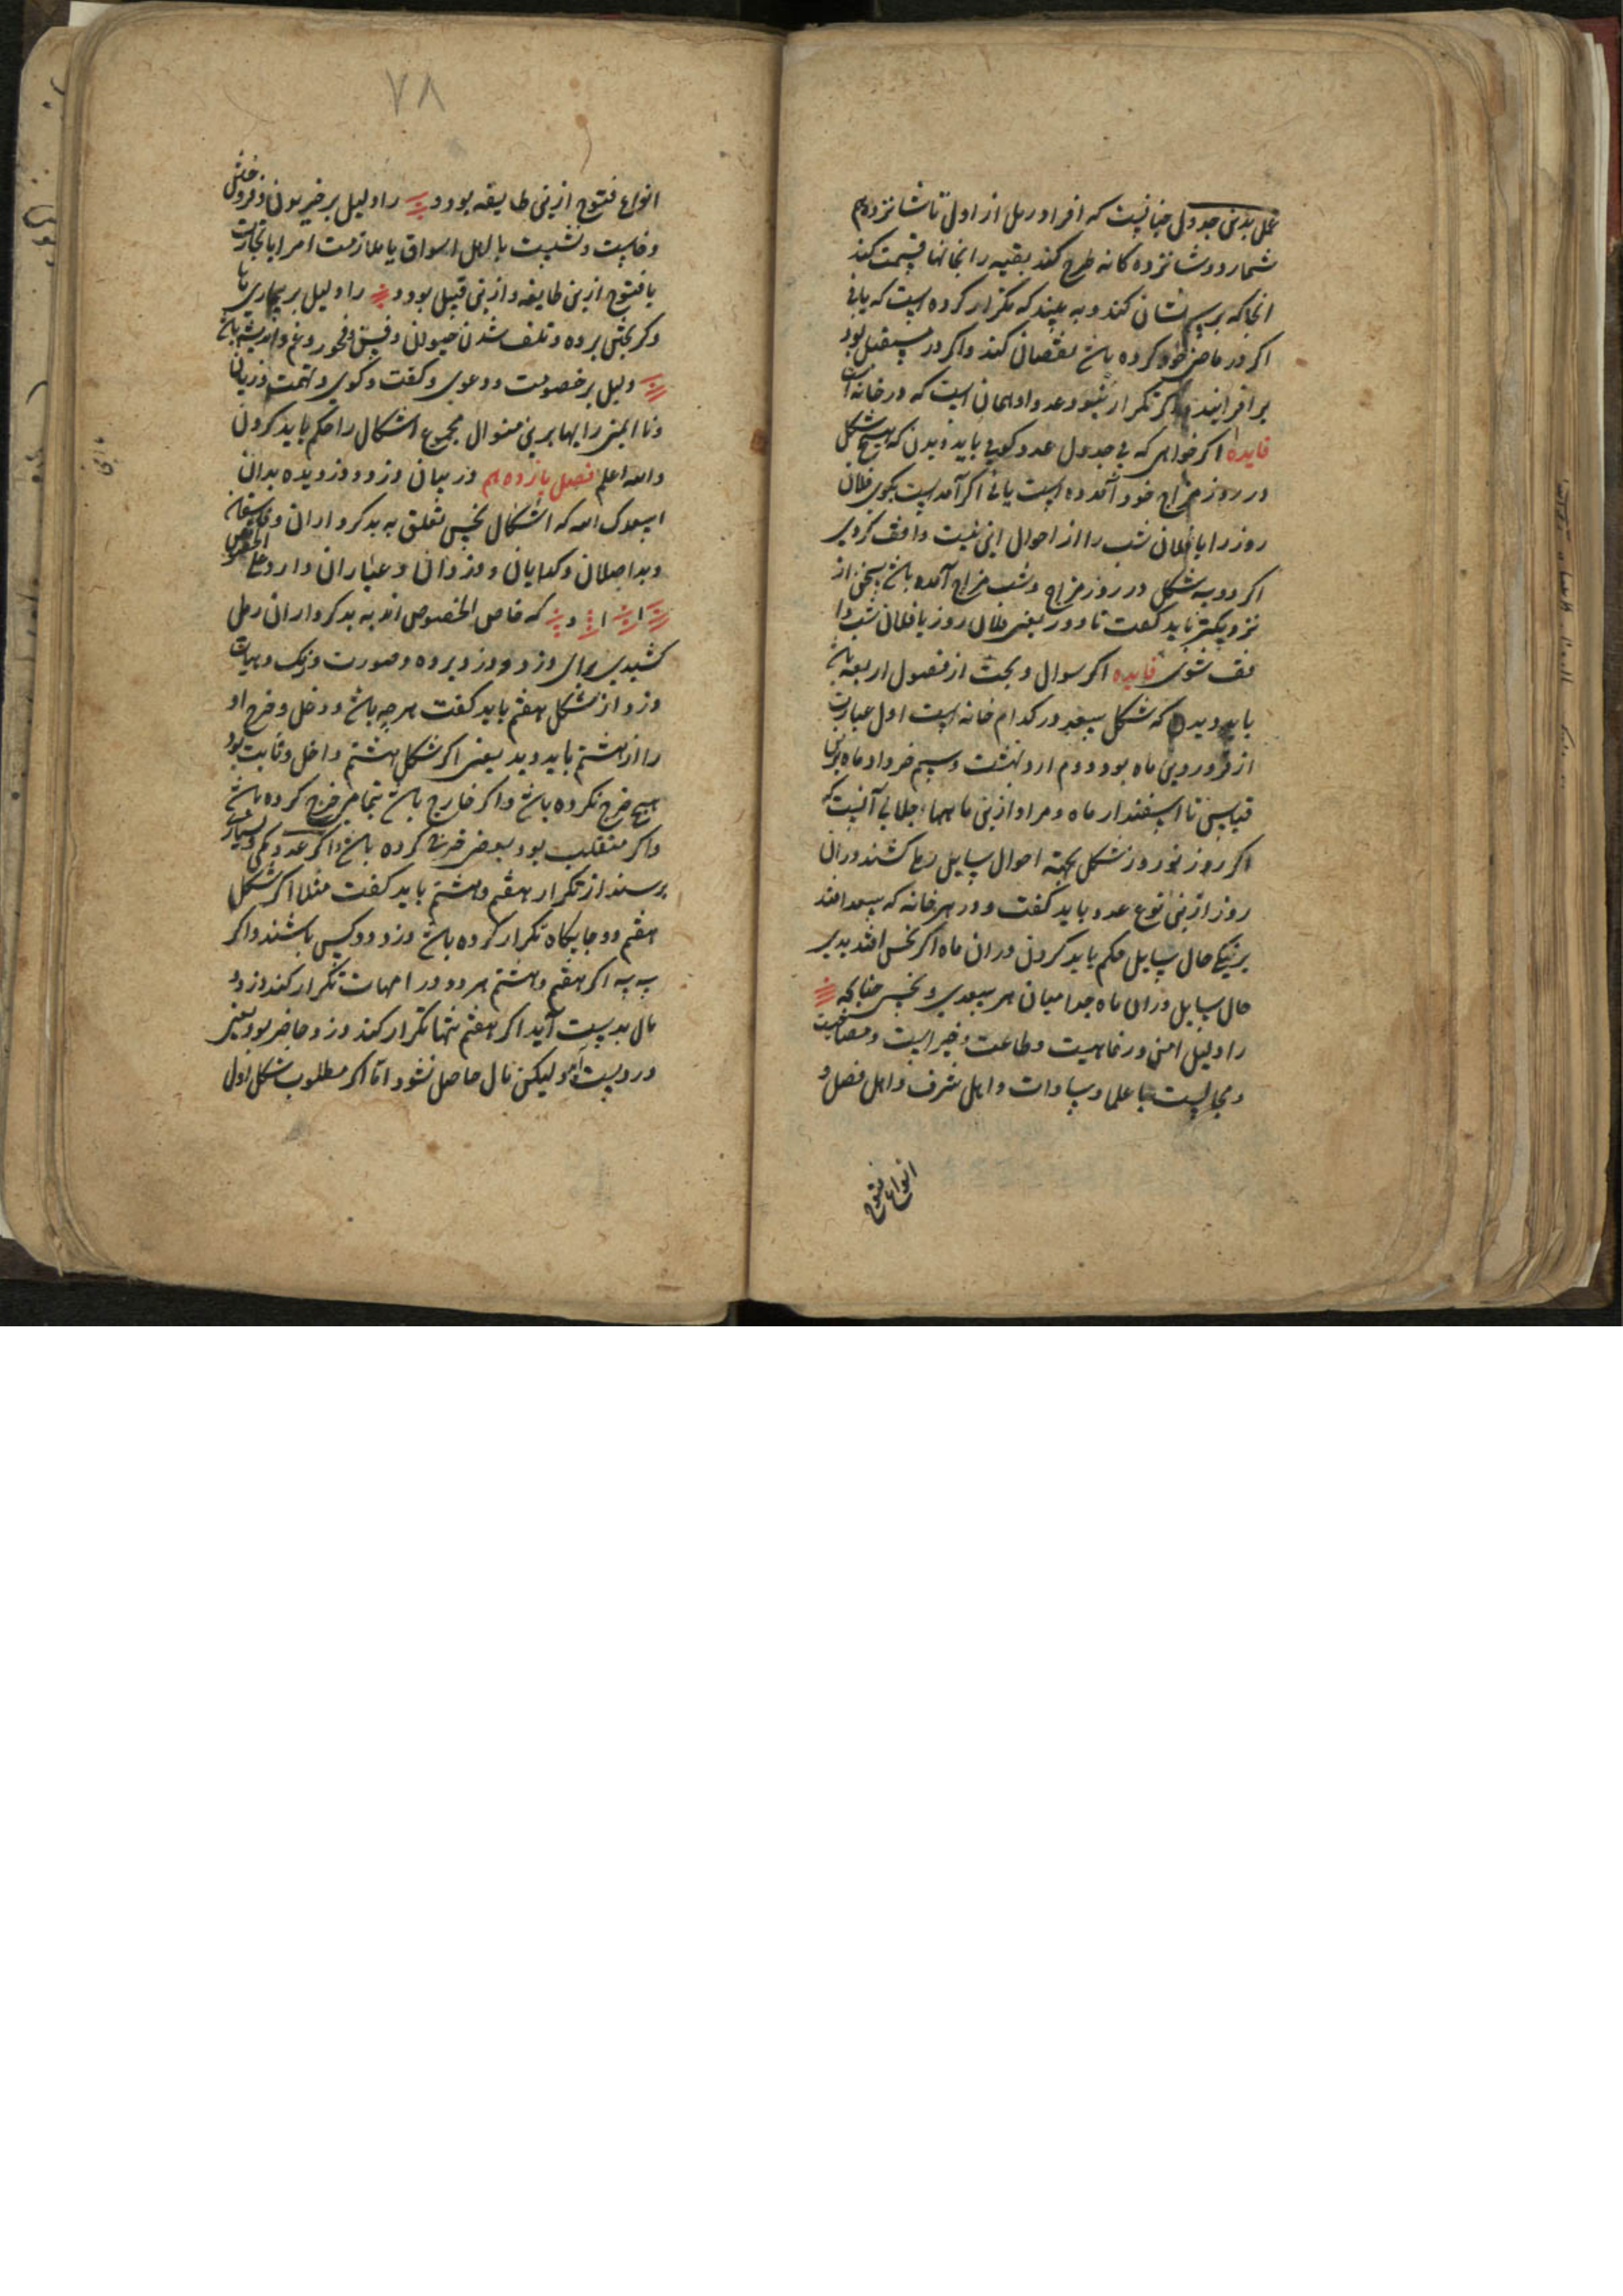 عمل بدین جدول چنانست که افراد رمل از اول تا شانزدهم
شمارد و شانزده کانه طرح کند بقیه را قسمت کند
انجا که برسد نشان کند و به بیند که تکرار کرده است که یا نی
اکر در ماضی خود کرده باشد نقصان کند و اکر در مستقبل بود
بر افزایند و اکر تکرار نشود عدد او همان است که در خانه
فایده اکر خواهی که بی جدول عدد کویی باید دیدن که هیچ شکل
در روز مزاج خود آمده است یا نی اکر آمده است بکوی فلان
روز را یا فلان شب را از احوال این نیت واقف کردی
اکر دو سه شکل در روز مزاج و شب مزاج آمده باشد سخن از
نزدیکتر باید کفت تا دور یعنی فلان روز یا فلان شب وا
قف شوی فایده اکر سوال و بحث از فصول اربعه باشد
باید دید که شکل سعد در کدام خانه است اول عبارت
از فروردین ماه بود دوم اردبهشت و سیم خرداد ماه برین
قیاس تا اسفندار ماه و مراد ازین ماهها جلالی آنست که
اکر روز نوروز شکل بجهة احوال سایل کشند در آن
روز ازین نوع عدد باید کفت و در هر خانه که سعد افتد
بر نیکی حال سایل حکم باید کردن در ان ماه اکر نحس افتد بدی
حال سایل در ان ماه جدا میان هر سعدی و نحسی چنانکه
را دلیل امن و رفاهیت و طاعت و خیر است و مصاحبت
و مجالست با علما و سادات و اهل شرف و اهل فضل و
انواع فتوح
۷۸
انواع فتوح ازین طایفه بود و را دلیل بر خیر بودن و فروختن
و نشست با اهل اسواق یا ملازمت امرا یا تجارت
یا فتوح ازین طایفه و ازین قبیل بود و را دلیل بر بیماری یا
و کریختن برده و تلف شدن حیوان و فسق و فجور و غم و اندیشه باشد
دلیل بر خصومت و دعوی و کفت و کوی و تهمت و زیان
برین منوال مجموع اشکال را حکم باید کردن
والله اعلم فصل پانزدهم در بیان دزد و دزدیده بدان
اسعدک الله که اشکال نحس تعلق به بدکرداران و فاسقان
و بد اصلان و کدایان و دزدان و عیاران دارد علی الخصوص
ا ا و که خاص الخصوص اند به بدکرداران رملی
کشیدی برای دزد و دزد برده و صورت و رنک و هیأت
دزد از شکل هفتم باید کفت هرچه باشد و دخل و خرج او
را از هشتم باید دید یعنی اکر شکل هشتم داخل و ثابت بود
هیچ خرج نکرده باشد و اکر خارج باشد بتمامی خرج کرده باشد
و اکر منقلب بود بعضی خرج کرده باشد و اکر عدد
پرسند از تکرار هفتم و هشتم باید کفت مثلا اکر شکل
هفتم دو جایکاه تکرار کرده باشد دزد دو کس باشند و اکر
سه سه اکر هفتم و هشتم هر دو در امهات تکرار کند دزد و
مال بدست آید اکر هفتم تنها تکرار کند دزد حاضر بود یعنی
در دست آید و لیکن مال حاصل نشود اما اکر مطلوب شکل اول